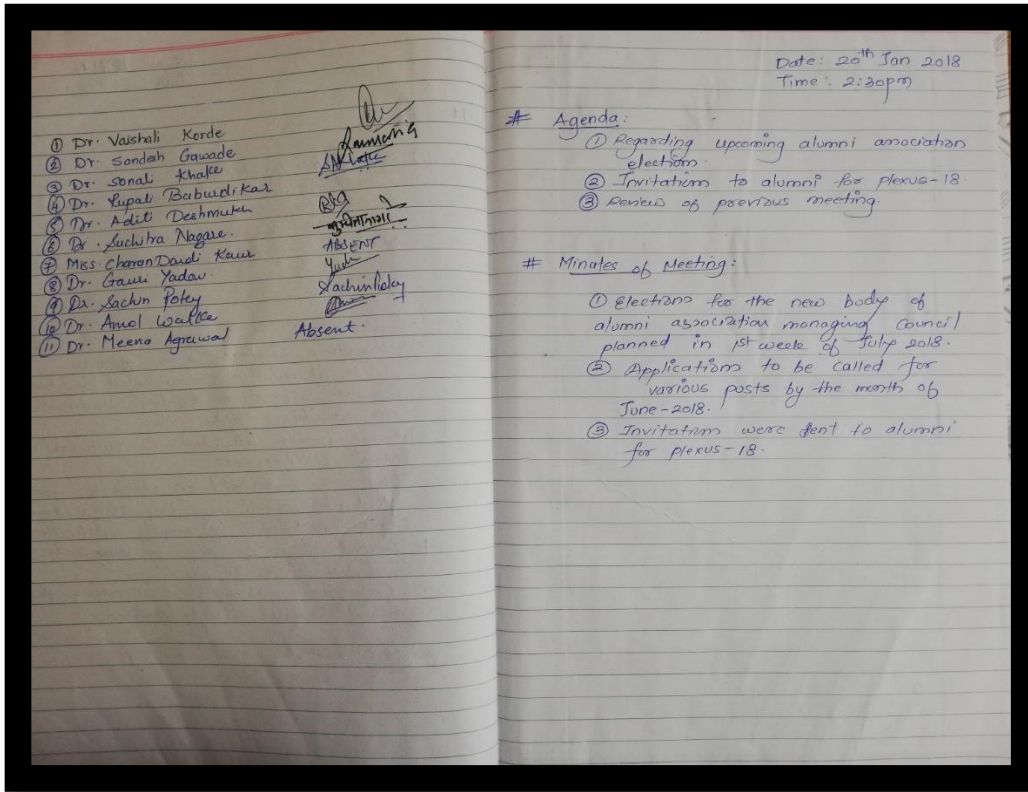 ① Dr. Vaishali Korde
② Dr. Sandesh Gawade
③ Dr. Sonali Khake
④ Dr. Rupali Baburdikar
⑤ Dr. Aditi Deshmukh
⑥ Dr. Suchitra Nagare.
⑦ Miss. Charan Dandi Kaur ABSENT
⑧ Dr. Gauri Yadav.
⑨ Dr. Sachin Potey Sachin Potey
⑩ Dr. Amol Walke
⑪ Dr. Meena Agrawal Absent.
Date: 20th Jan 2018
Time: 2:30pm
# Agenda:
① Regarding upcoming alumni association
election.
② Invitation to alumni for plexus-18.
③ Review of previous meeting.
# Minutes of Meeting:
① Elections for the new body of
alumni association managing Council
planned in 1st week of July 2018.
② Applications to be called for
various posts by the month of
June-2018.
③ Invitations were sent to alumni
for plexus-18.